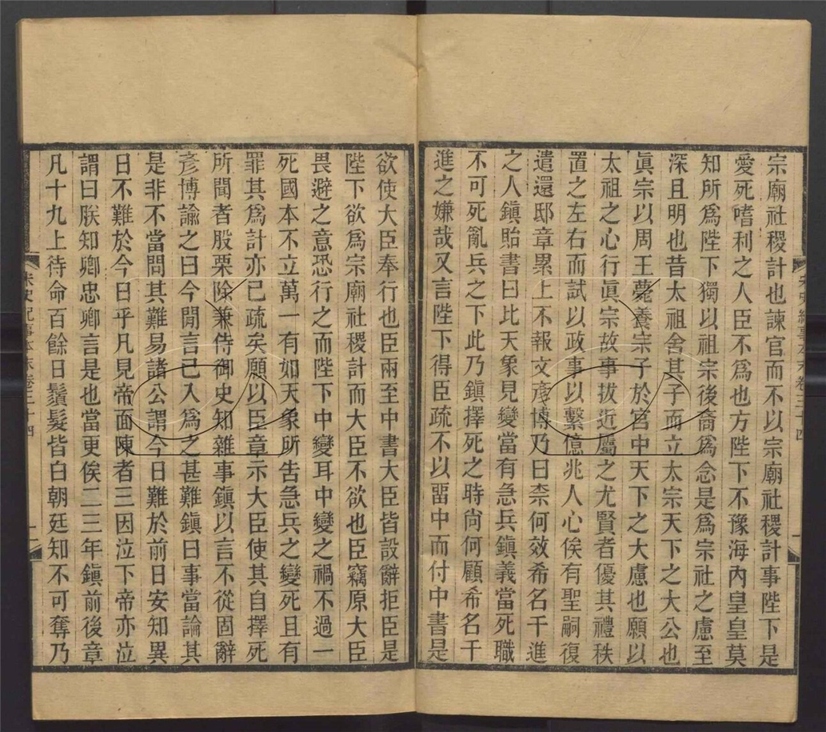 宗廟社稷計也諫官而不以宗廟社稷計事陛下是
愛死嗜利之人臣不爲也方陛下不豫海內皇皇莫
知所爲陛下獨以祖宗後裔爲念是爲宗社之慮至
深且明也昔太祖舍其子而立太宗天下之大公也
眞宗以周王薨養宗子於宮中天下之大慮也願以
太祖之心行眞宗故事拔近屬之尤賢者優其禮秩
置之左右而試以政事以繫億兆人心俟有聖嗣復
遣還邸章累上不報文彥博乃曰柰何效希名干進
之人鎭貽書曰比天象見變當有急兵鎭義當死職
不可死亂兵之下此乃鎭擇死之時尙何顧希名干
進之嫌哉又言陛下得臣疏不以畱中而付中書是
欲使大臣奉行也臣兩至中書大臣皆設辭拒臣是
陛下欲爲宗廟社稷計而大臣不欲也臣竊原大臣
畏避之意恐行之而陛下中變耳中變之禍不過一
死國本不立萬一有如天象所告急兵之變死且有
罪其爲計亦已疏矣願以臣章示大臣使其自擇死
所聞者股栗除兼侍御史知雜事鎭以言不從固辭
彥博諭之曰今閒言已入爲之甚難鎭曰事當論其
是非不當問其難易諸公謂今日難於前日安知異
日不難於今日乎凡見帝面陳者三因泣下帝亦泣
謂曰朕知卿忠卿言是也當更俟二三年鎭前後章
凡十九上待命百餘日鬚髮皆白朝廷知不可奪乃
宋史紀事本末卷三十四